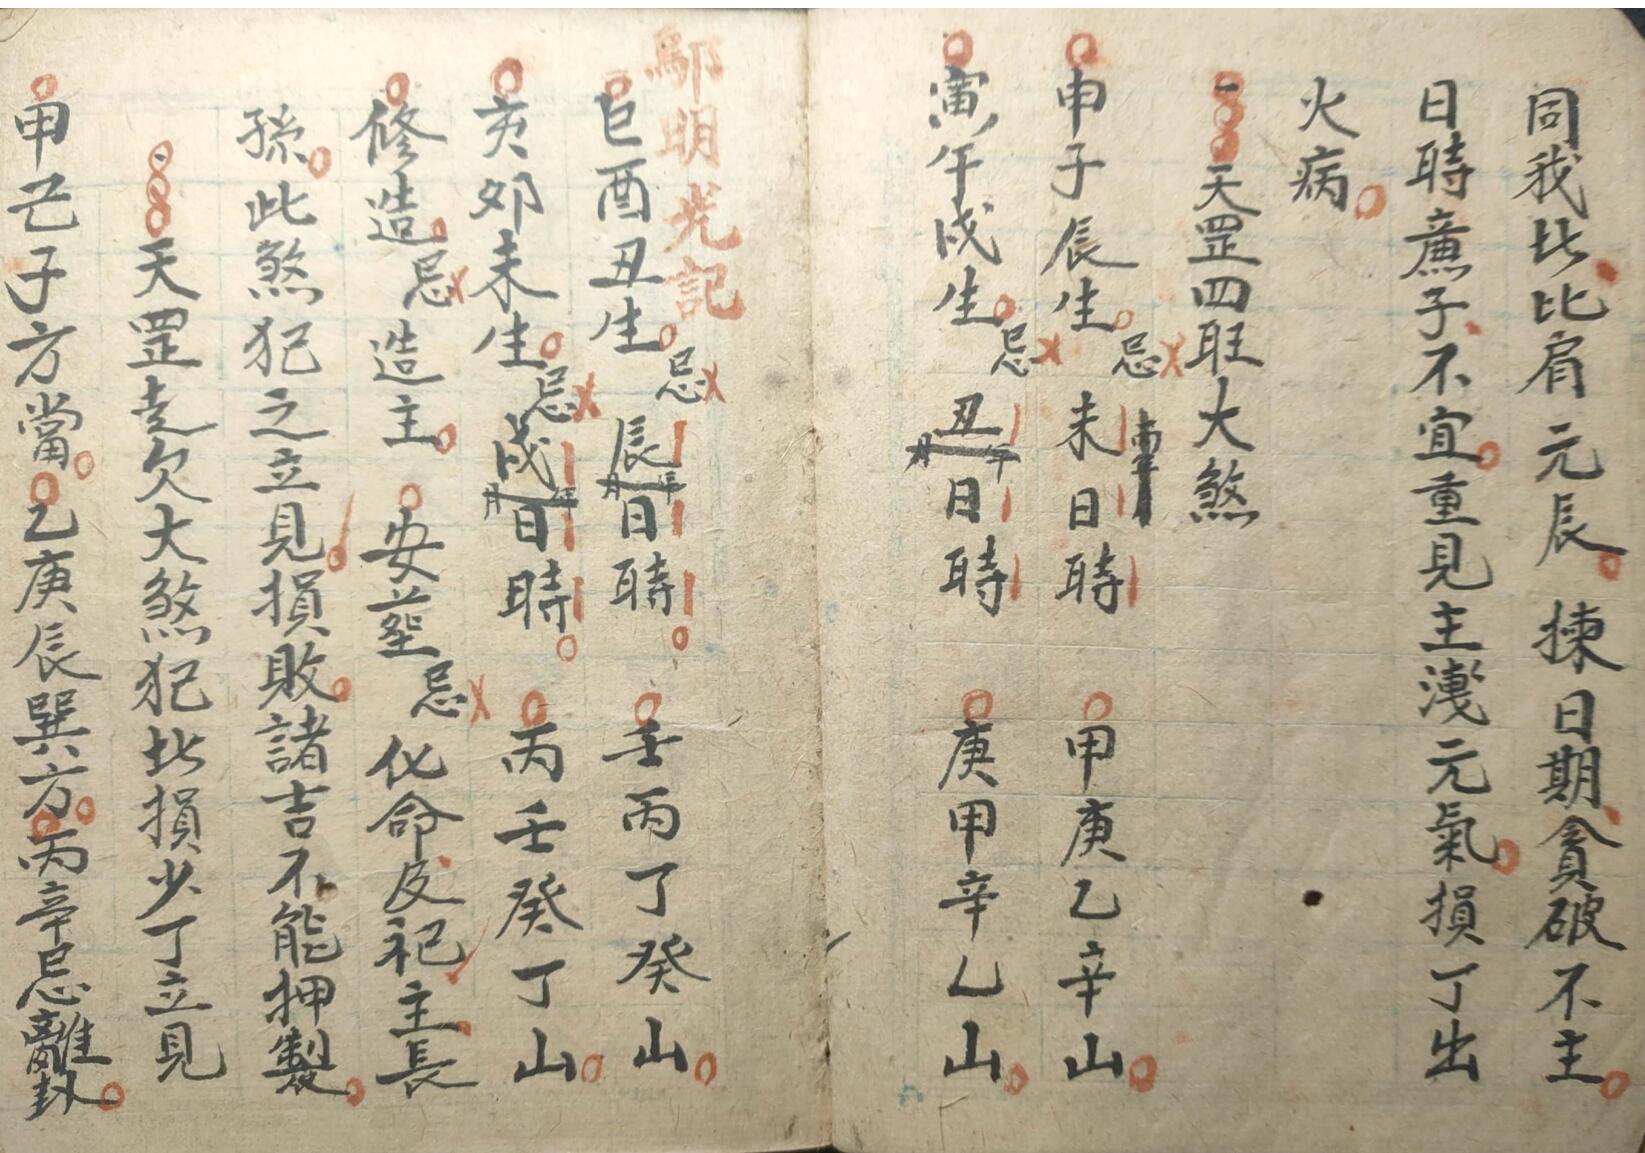 同我比比肩元辰揀日期貪破不主
日時薦子不宜重見主洩元氣損丁出
火病
天罡四旺大煞
申子辰生忌未日時 甲庚乙辛山
寅午戌生忌丑年月日時 庚甲辛乙山
鄔明光記
巳酉丑生忌辰年月日時 壬丙丁癸山
亥卯未生忌戌年月日時 丙壬癸丁山
修造忌造主 安塟忌化命及祀主長
孫此煞犯之立見損敗諸吉不能押製
天罡走欠大煞犯此損少丁立見
甲己子方當乙庚辰巽方丙辛忌離卦